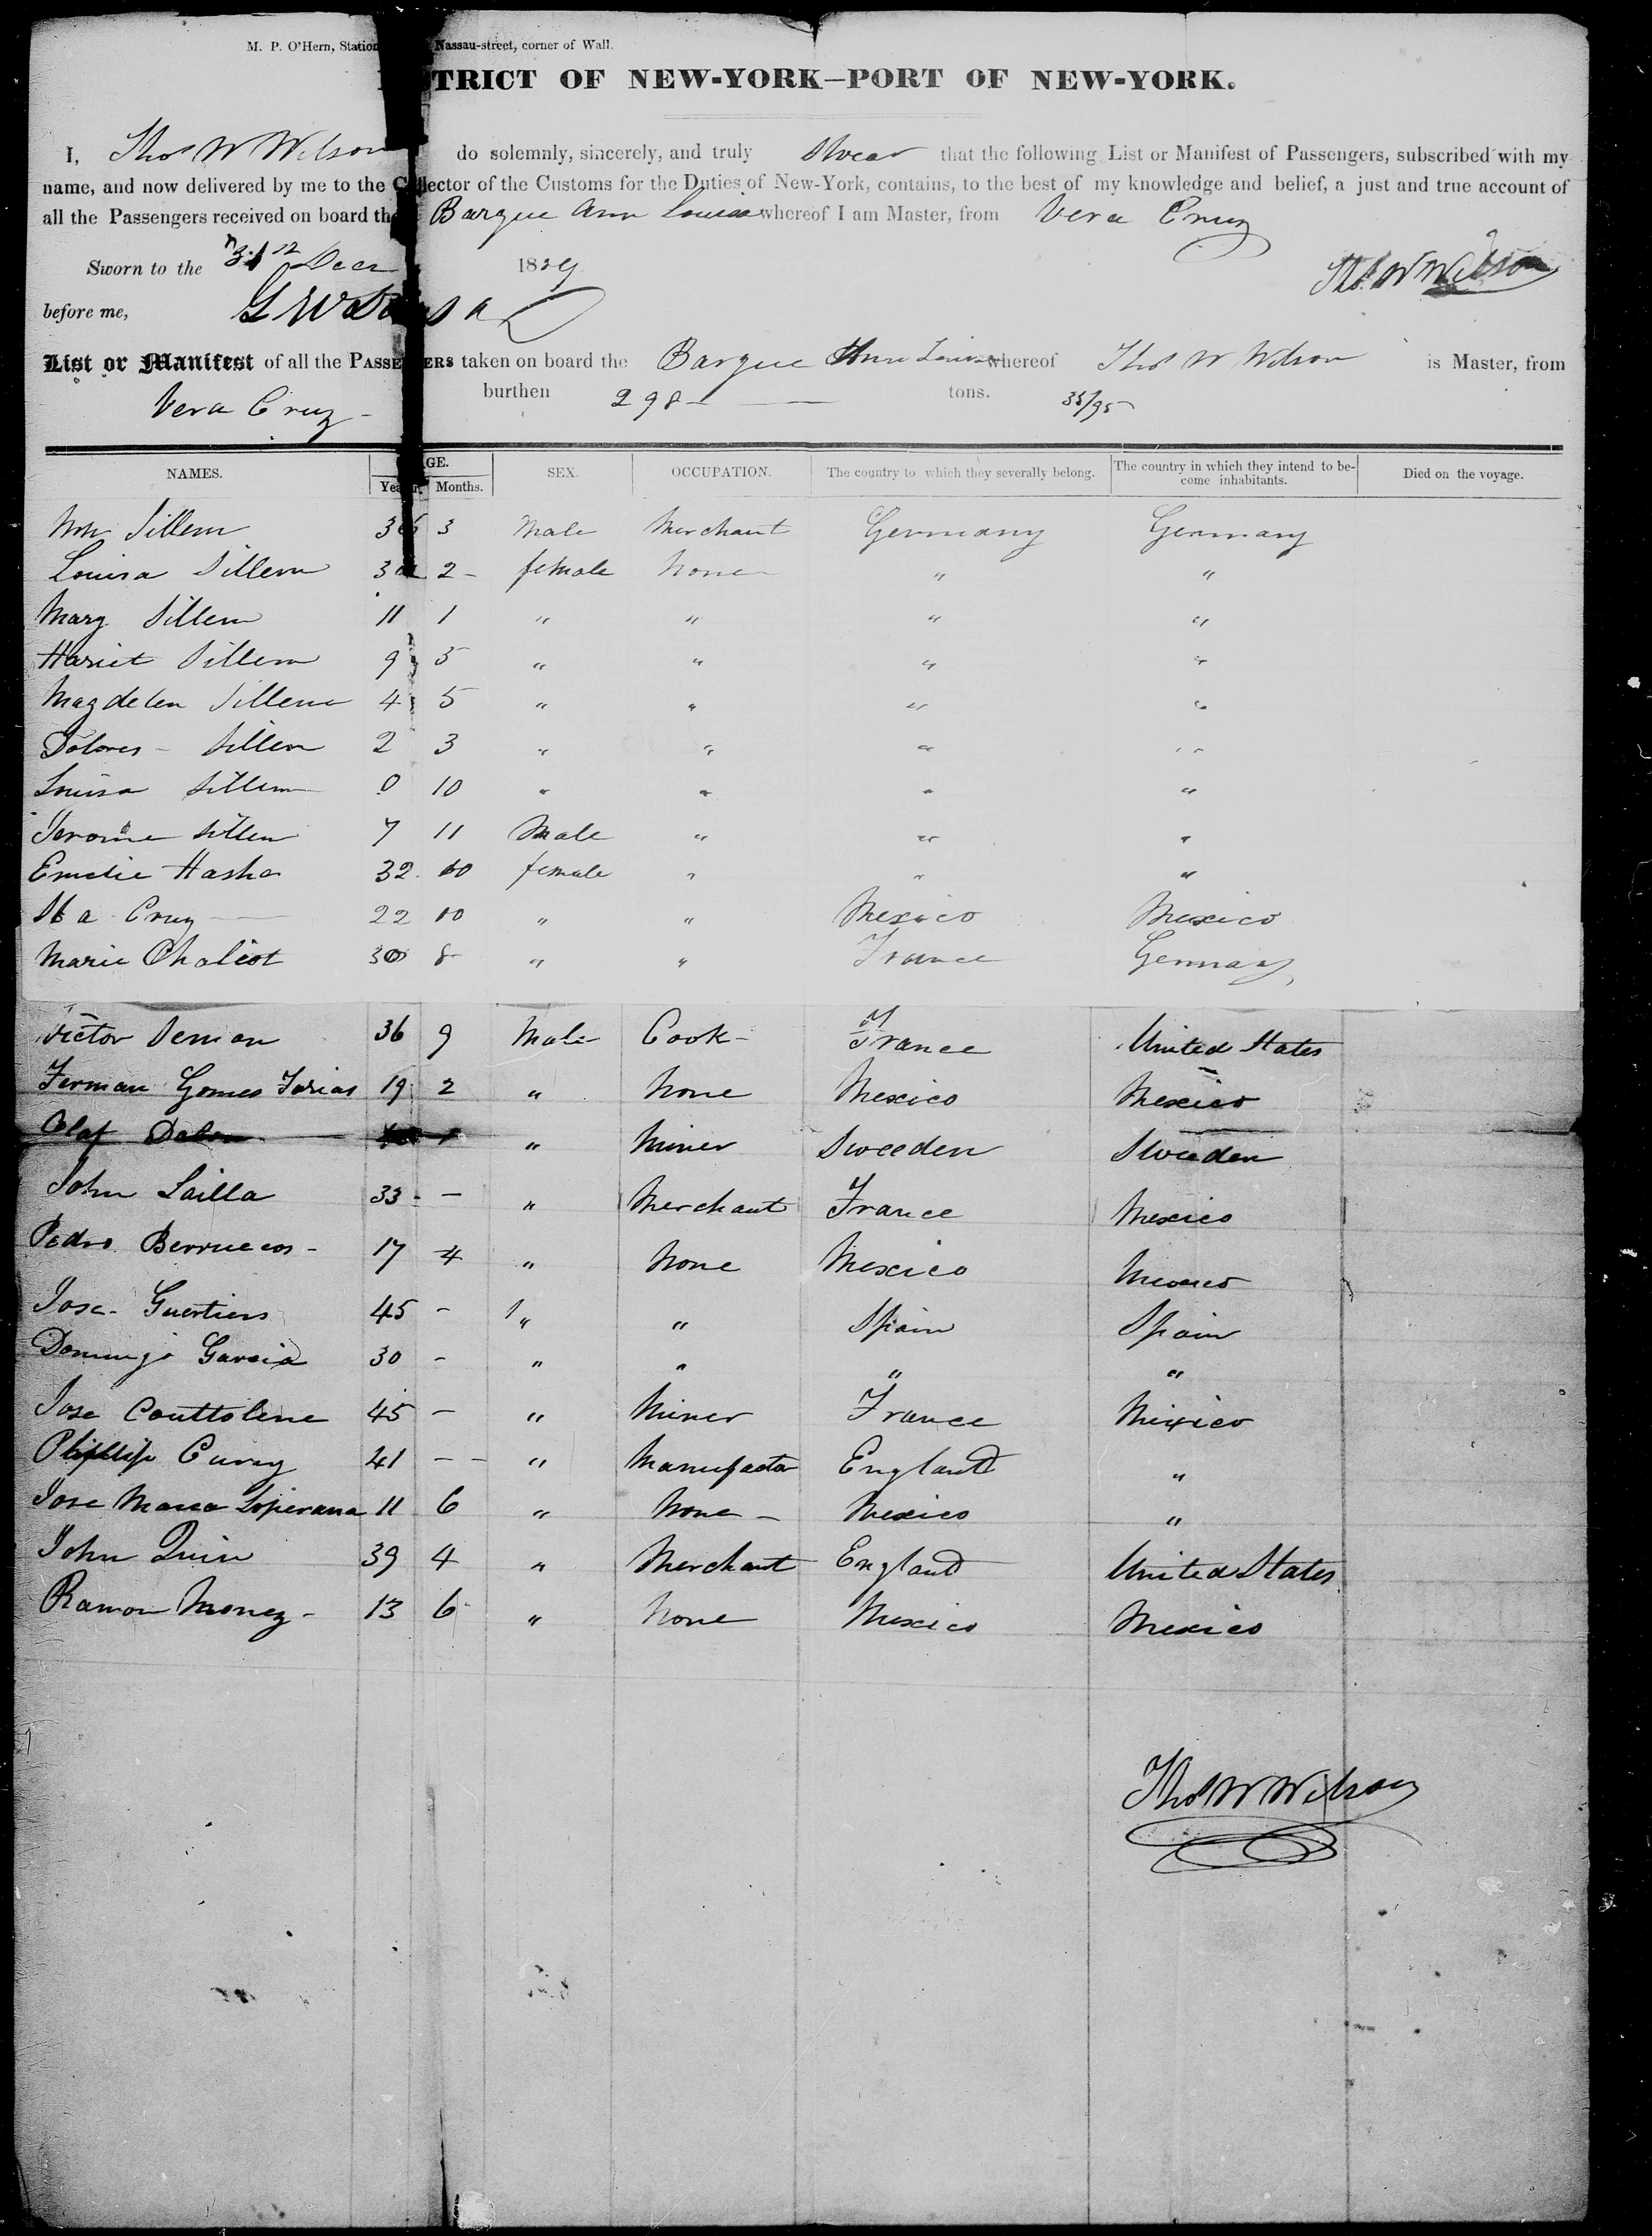 M. P. O'Hern, Station Nassau-street, corner of Wall.
TRICT OF NEW-YORK—PORT OF NEW-YORK.
I, Thos W Wilson do solemnly, sincerely, and truly Swear that the following List or Manifest of Passengers, subscribed with my
name, and now delivered by me to the Collector of the Customs for the Duties of New-York, contains, to the best of my knowledge and belief, a just and true account of
all the Passengers received on board the Barque Ann Louisa whereof I am Master, from Vera Cruz
Sworn to the 31st Decr 1829 Thos W Wilson
before me,
List or Manifest of all the PASSENGERS taken on board the Barque Ann Louisa whereof Thos W Wilson is Master, from
Vera Cruz burthen 298 tons. 35/95
NAMES. AGE. SEX. OCCUPATION. The country to which they severally belong. The country in which they intend to be-come inhabitants. Died on the voyage.
Years. Months.
Wm Sillem 36 3 Male Merchant Germany Germany
Louisa Sillem 2 female None " "
Mary Sillem 11 1 " " " "
Hariet Sillem 9 5 " " " "
Magdelen Sillem 4 5 " " " "
Dolores Sillem 2 3 " " " "
Louisa Sillem 0 10 " " " "
Jerome Sillem 7 11 Male " " "
Emelie Hasha 32 10 female " " "
Sta Cruz 22 10 " " Mexico Mexico
Marie Chaliot 30 8 " " France Germany
Victor Deman 36 9 Male Cook France United States
Ferman Gomes Farias 19 2 " None Mexico Mexico
Olaf " Miner Sweeden Sweeden
John Lailla 33 - " Merchant France Mexico
Pedro Berruecos 17 4 " None Mexico Mexico
Jose Guertiers 45 - " " Spain Spain
Domingo Garcia 30 - " " " "
Jose Couttolene 45 - " Miner France Mexico
Phillip Curry 41 - - " Manufactor England "
Jose Maria Loperana 11 6 " None Mexico "
John Quin 39 4 " Merchant England United States
Ramon Monez 13 6 " None Mexico Mexico
Thos W Wilson